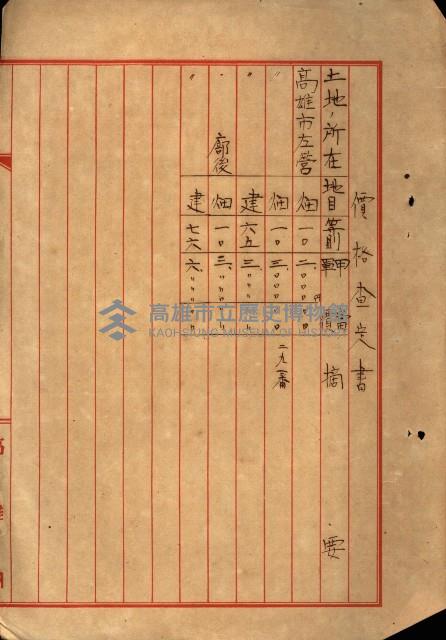 價格查定書
土地ノ所在 地目 等則 甲當價 摘要
高雄市左營 畑 一〇 二、〇〇〇〇 円
〃 畑 一〇 三、〇〇〇〇 二九一番
〃 建 六五 三、〃〃〃〃
廍後 畑 一〇 三、〃〃〃〃
〃 建 七六 六、〃〃〃〃
高雄市立歷史博物館
KAOHSIUNG MUSEUM OF HISTORY